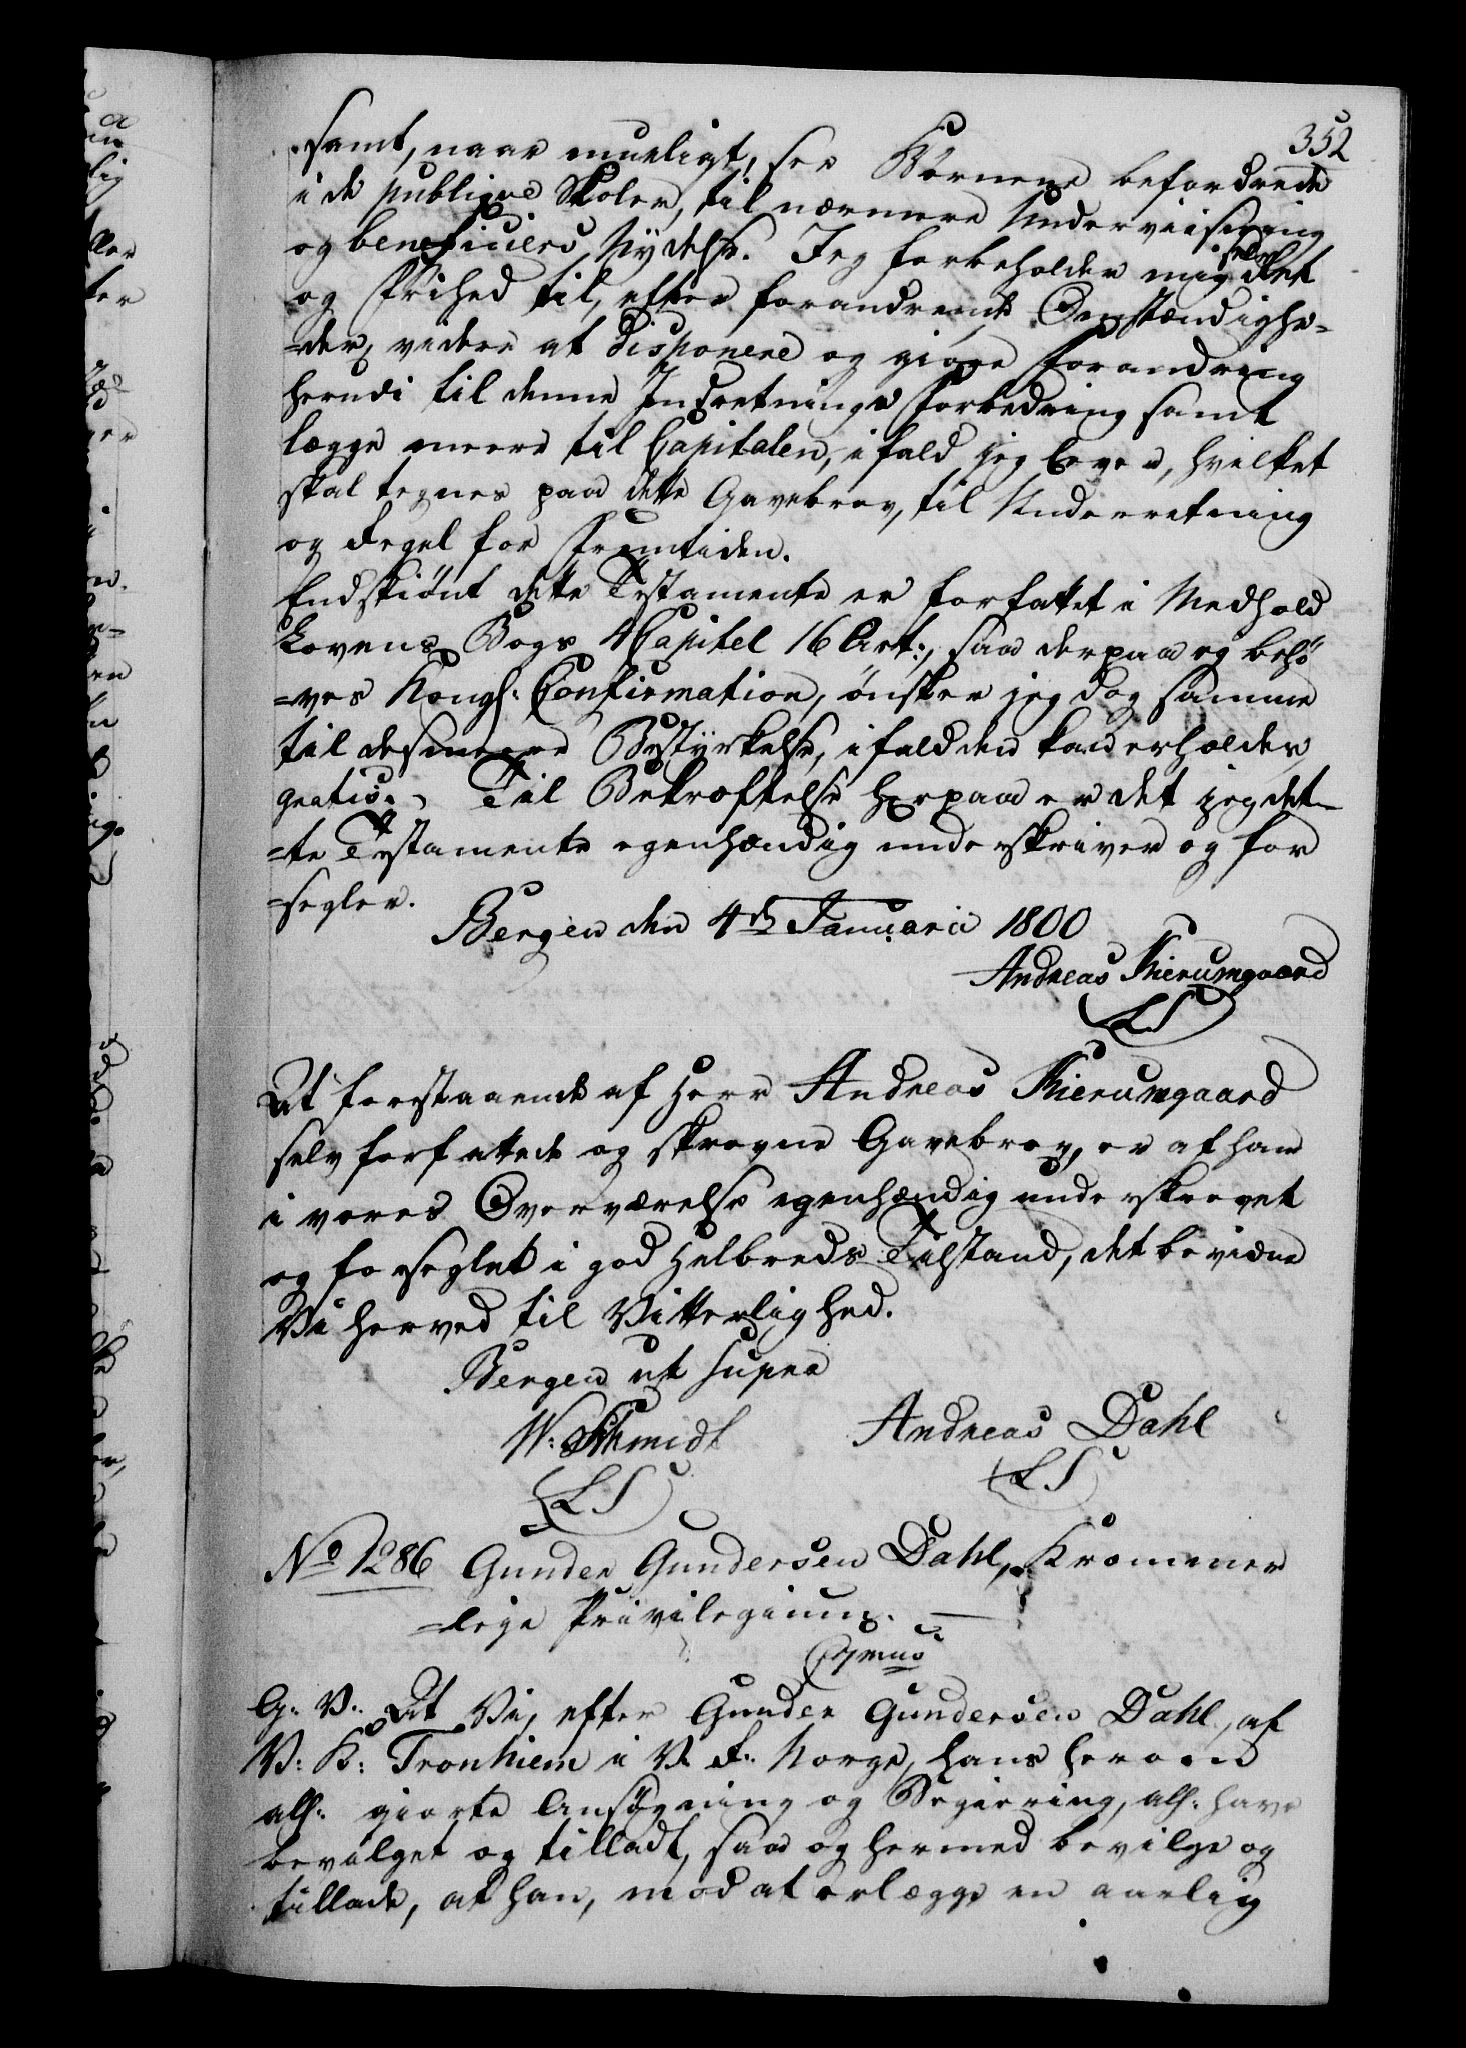 352
samt, naar mueligt, see Børnene befordrede
i de publiqve Skoler, til nærmere Underviisning
og beneficiers Nydelse. Jeg forbeholder mig selv Ret
og Frihed til, efter forandrende Omstændighe-
=der, videre at disponere og giøre Forandring
herudi til denne Indretnings Forbedring samt
lægge meere til Capitalen, ifald jeg lever, hvilket
skal tegnes paa dette Gavebrev, til Underretning
og Regel for Fremtiden.
Endskiønt dette Testamente er forfattet i Medhold
Lovens Bogs 4 Capitel 16 Art:, saa derpaa ej behø
=ves Kongl: Confirmation, ønsker jeg dog samme
til desmeere Bestyrkelse, ifald den kan erholdes
gratis. Til Bekræftelse herpaa er det jeg det-
=te Testamente egenhændig underskriver og for
=segler.
Bergen den 4de Januarii 1800
Andreas Kierumgaard
LS
At forestaaende af Herr Andreas Kierumgaard
selv forfattede og skrevne Gavebrev, er af ham
i vores Overværelse egenhændig underskrevet
og forseglet i god Helbreds Tilstand, det bevidne
Vi herved til Vitterlighed.
Bergen ut supra
W: Schmidt Andreas Dahl
LS LS
No 1286 Gunder Gundersen Dahl, Kræmmer
=leje Privilegium. —
G: V: At Vi, efter Gunder Gundersen Dahl, af
V: K: Tronhiem i V: R: Norge, hans herom
all: giorte Ansøgning og Begiering, all: have
bevilget og tilladt, saa og hermed bevilge og
tillade, at han, mod at erlægge en aarlig